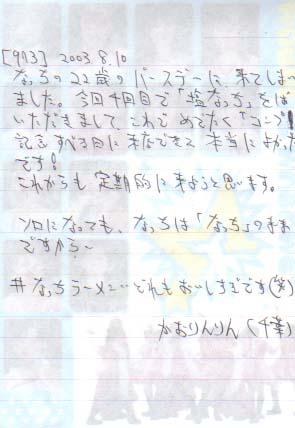 [913] 2003.8.10
なっちの22歳のバースデーに、来てしまい
ました。今回4回目で「塩なっち」をば
いただきまして、これでめでたく「コンプ!
記念すべき日に来店できて本当によかった
です!
これからも定期的に来ようと思います。
ソロになっても、なっちは「なっち」のまま
ですから〜
#なっちラーメン…どれもおいしすぎです(笑)
かおりんりん(千葉)